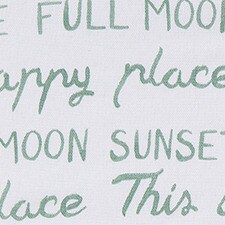 E FULL MOON
appy place
MOON SUNSET
lace This